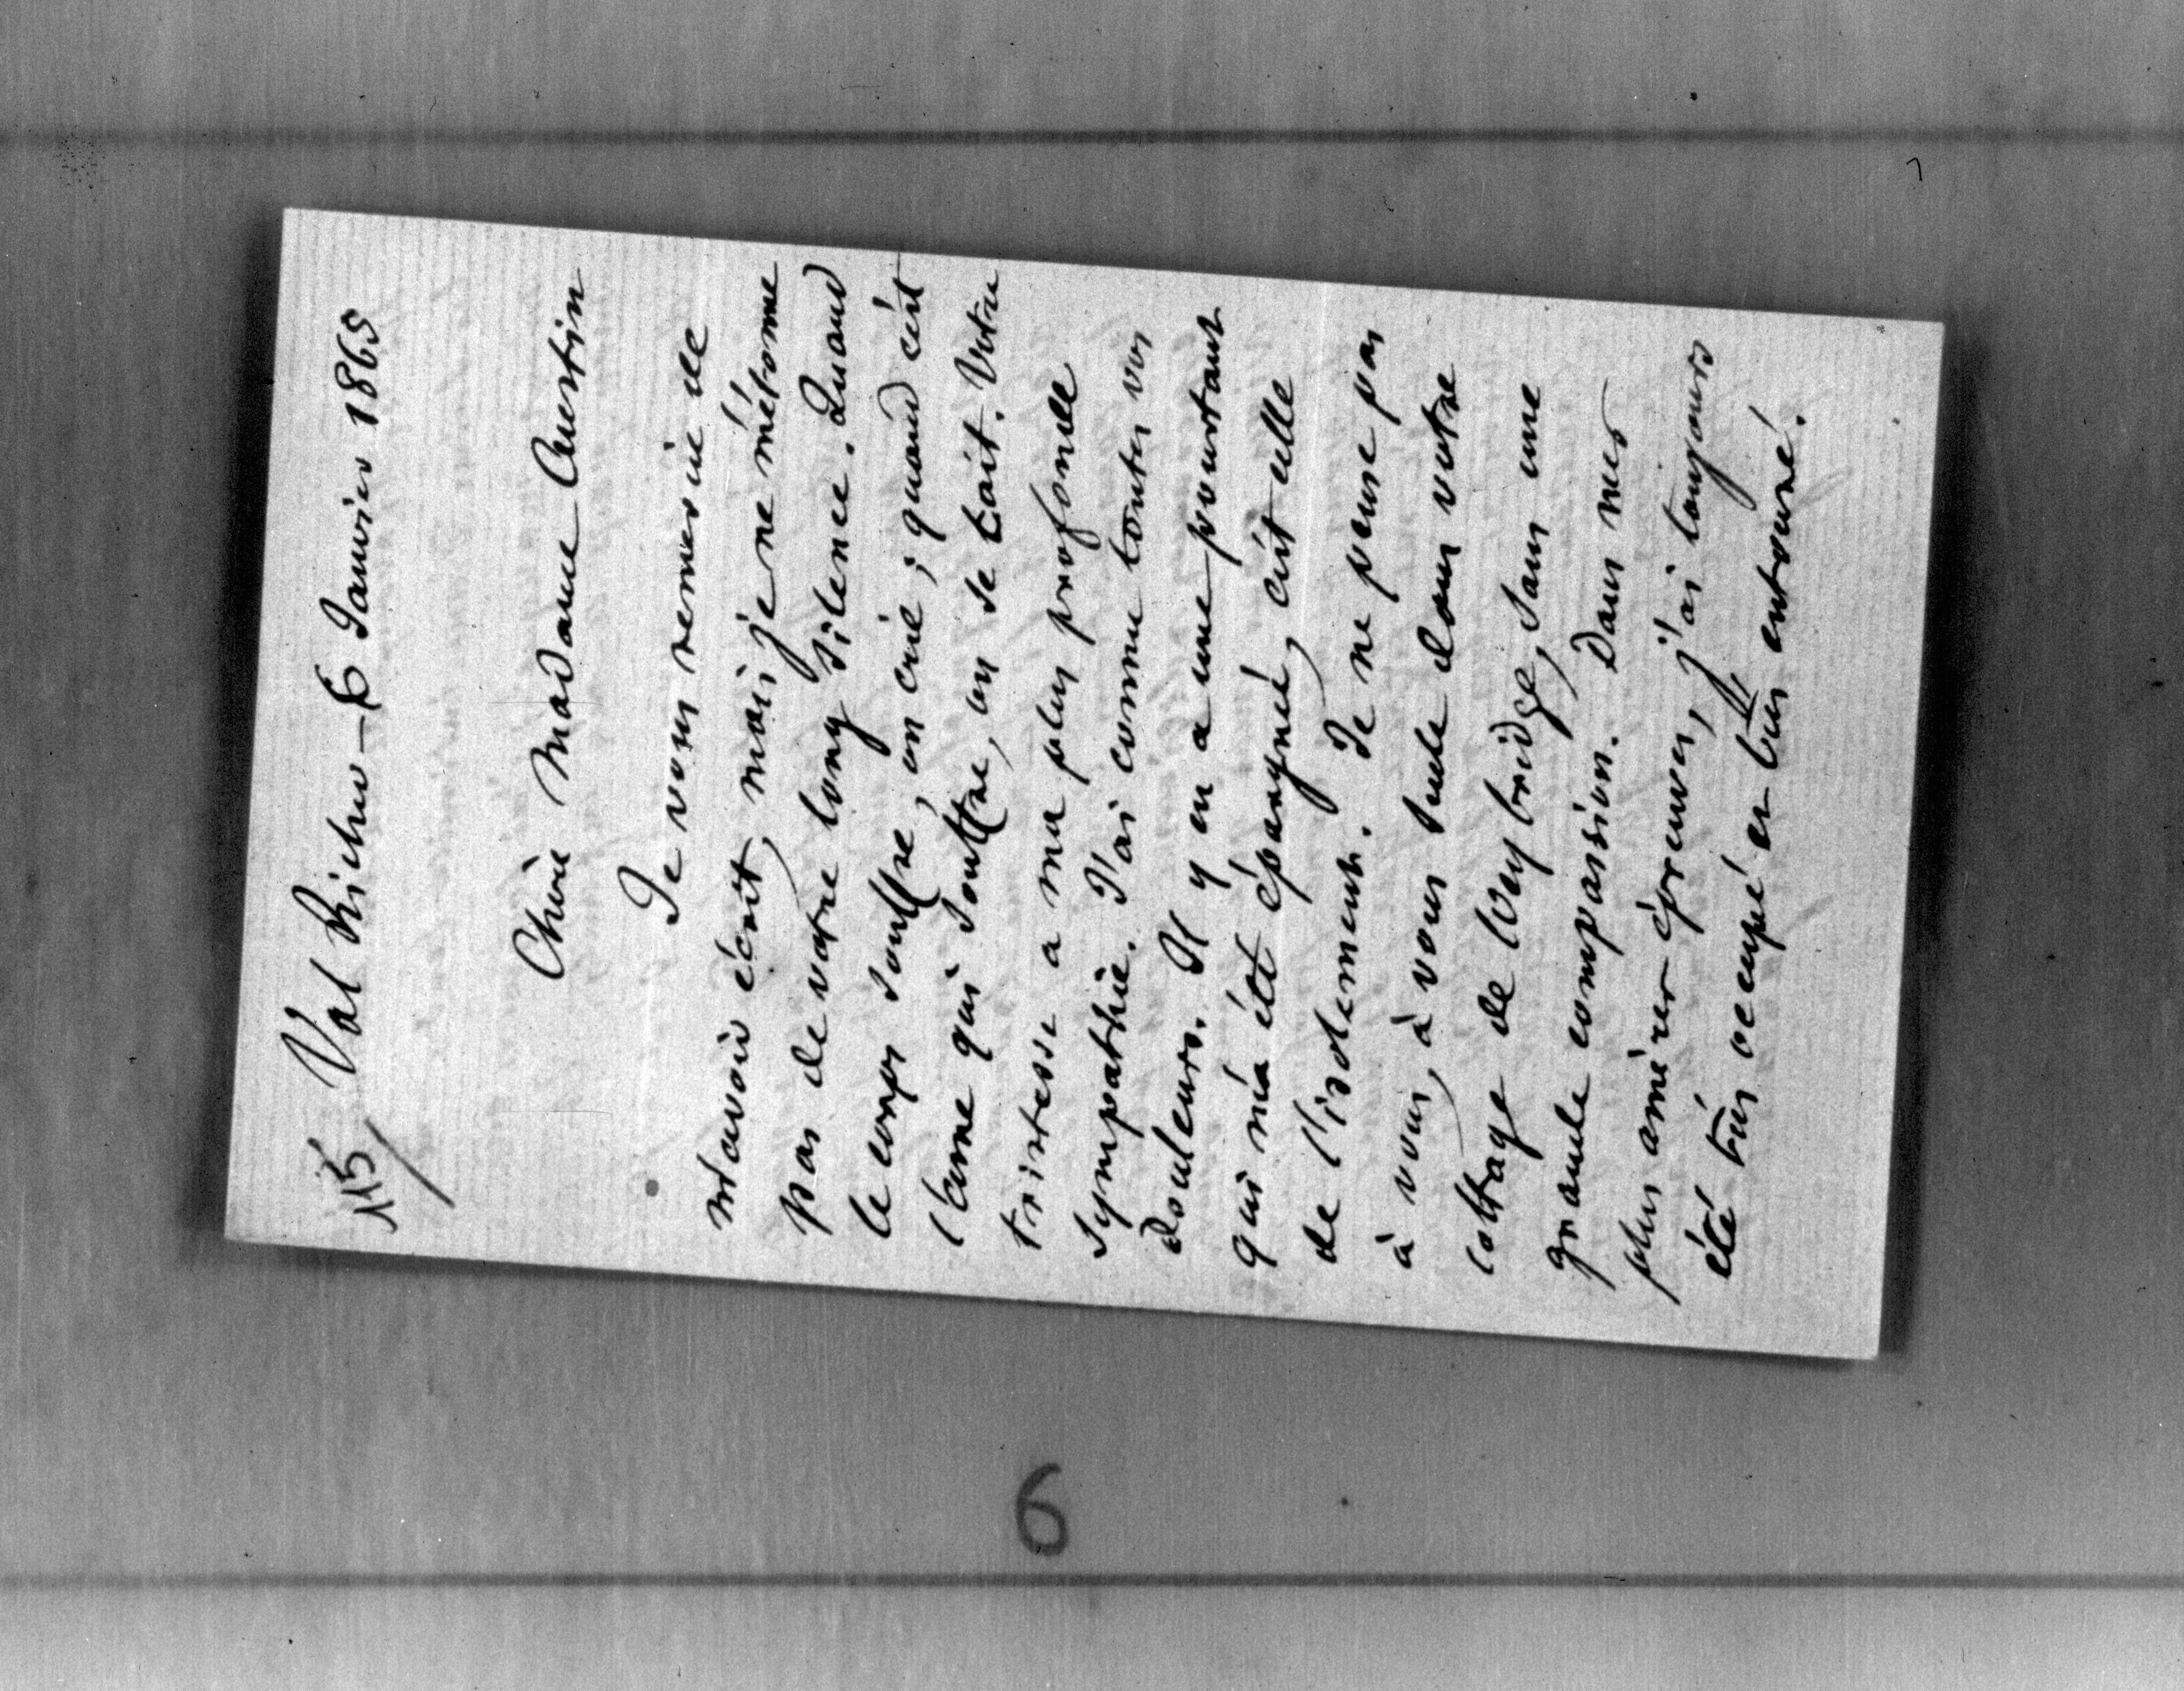 115/ Val Richer - 6 Janvier 1865
Chère Madame Austin
Je vous remercie de
m'avoir écrit, mais je ne m'étonne
pas de votre long silence. Quand
le corps souffre, on crie ; quand c'est
l'ame qui souffre, on se tait. Votre
tristesse a ma plus profonde
sympathie. J'ai connu toutes vos
douleurs. Il y en a une pourtant
qui m'a été épargnée, c'est celle
de l'isolement. Je ne pense pas
à vous, à vous seule dans votre
cottage de Weybridge, sans une
grande compassion. Dans mes
plus amères épreuves, j'ai toujours
été très occupé et très entouré.
6